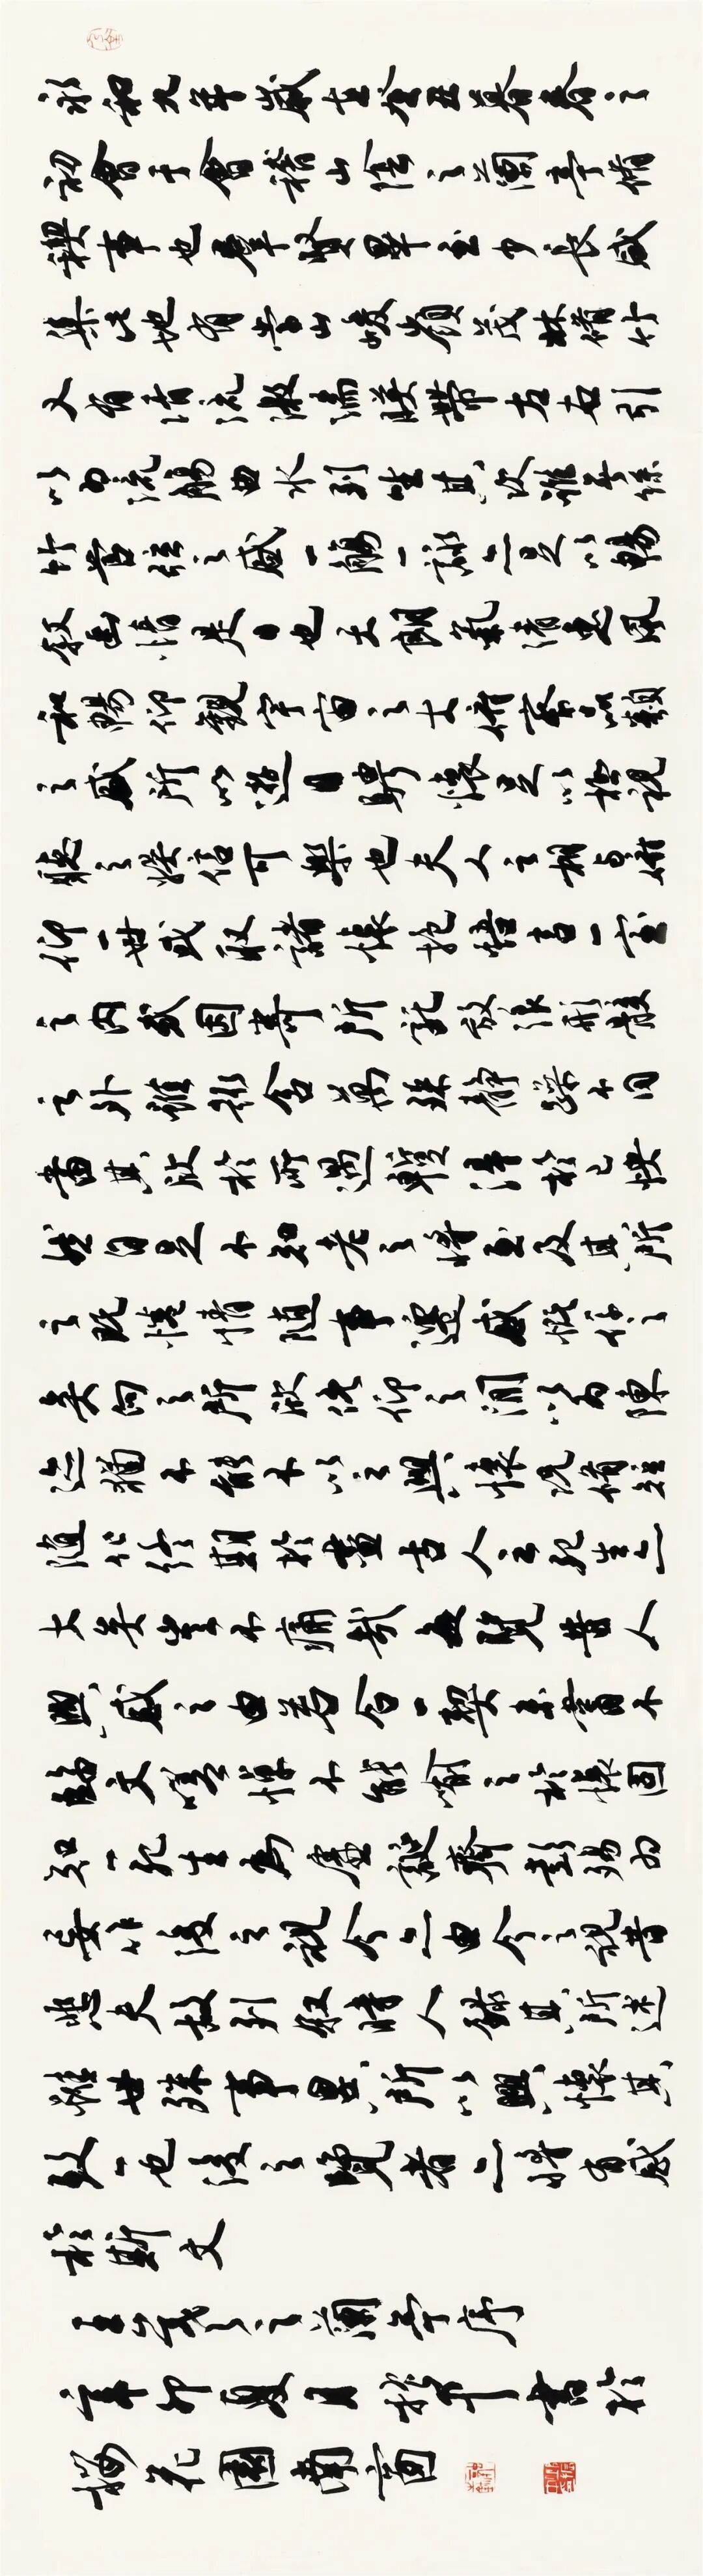 永和九年歲在癸丑暮春之
初會于會稽山陰之蘭亭脩
禊事也群賢畢至少長咸
集此地有崇山峻領茂林脩竹
又有清流激湍暎帶左右引
以為流觴曲水列坐其次雖無絲
竹管弦之盛一觴一詠亦足以暢
敘幽情是日也天朗氣清惠風
和暢仰觀宇宙之大俯察品類
之盛所以遊目騁懷足以極視
聽之娛信可樂也夫人之相與俯
仰一世或取諸懷抱悟言一室
之內或因寄所託放浪形骸
之外雖趣舍萬殊靜躁不同
當其欣於所遇蹔得於己快
然自足不知老之將至及其所
之既惓情隨事遷感慨係之
矣向之所欣俛仰之閒以為陳
迹猶不能不以之興懷況脩短
隨化終期於盡古人云死生亦
大矣豈不痛哉每覽昔人
興感之由若合一契未嘗不
臨文嗟悼不能喻之於懷固
知一死生為虛誕齊彭殤為
妄作後之視今亦由今之視昔
悲夫故列敘時人錄其所述
雖世殊事異所以興懷其
致一也後之覽者亦將有感
於斯文
王羲之之蘭亭序
辛卯夏月書於
梅花園南窗